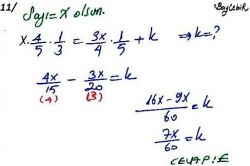 11/
Sayı=x olsun.
Baylebik
x·4/5·1/3 = 3x/4·1/5 + k ⇒k=?
4x/15 - 3x/20 = k
(4) (3)
16x-9x/60 = k
7x/60 = k
CEVAP: E